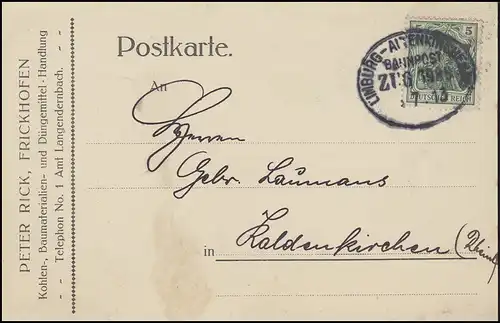 PETER RICK, FRICKHOFEN
Kohlen-, Baumaterialien- und Düngemittel-Handlung
- - Telephon No. 1 Amt Langendernbach. - -
Postkarte.
5 5
DEUTSCHES REICH
LIMBURG-ALTENKIRCHEN
BAHNPOST
ZUG
An
Herren
Gebr. Laumans
in Kaldenkirchen